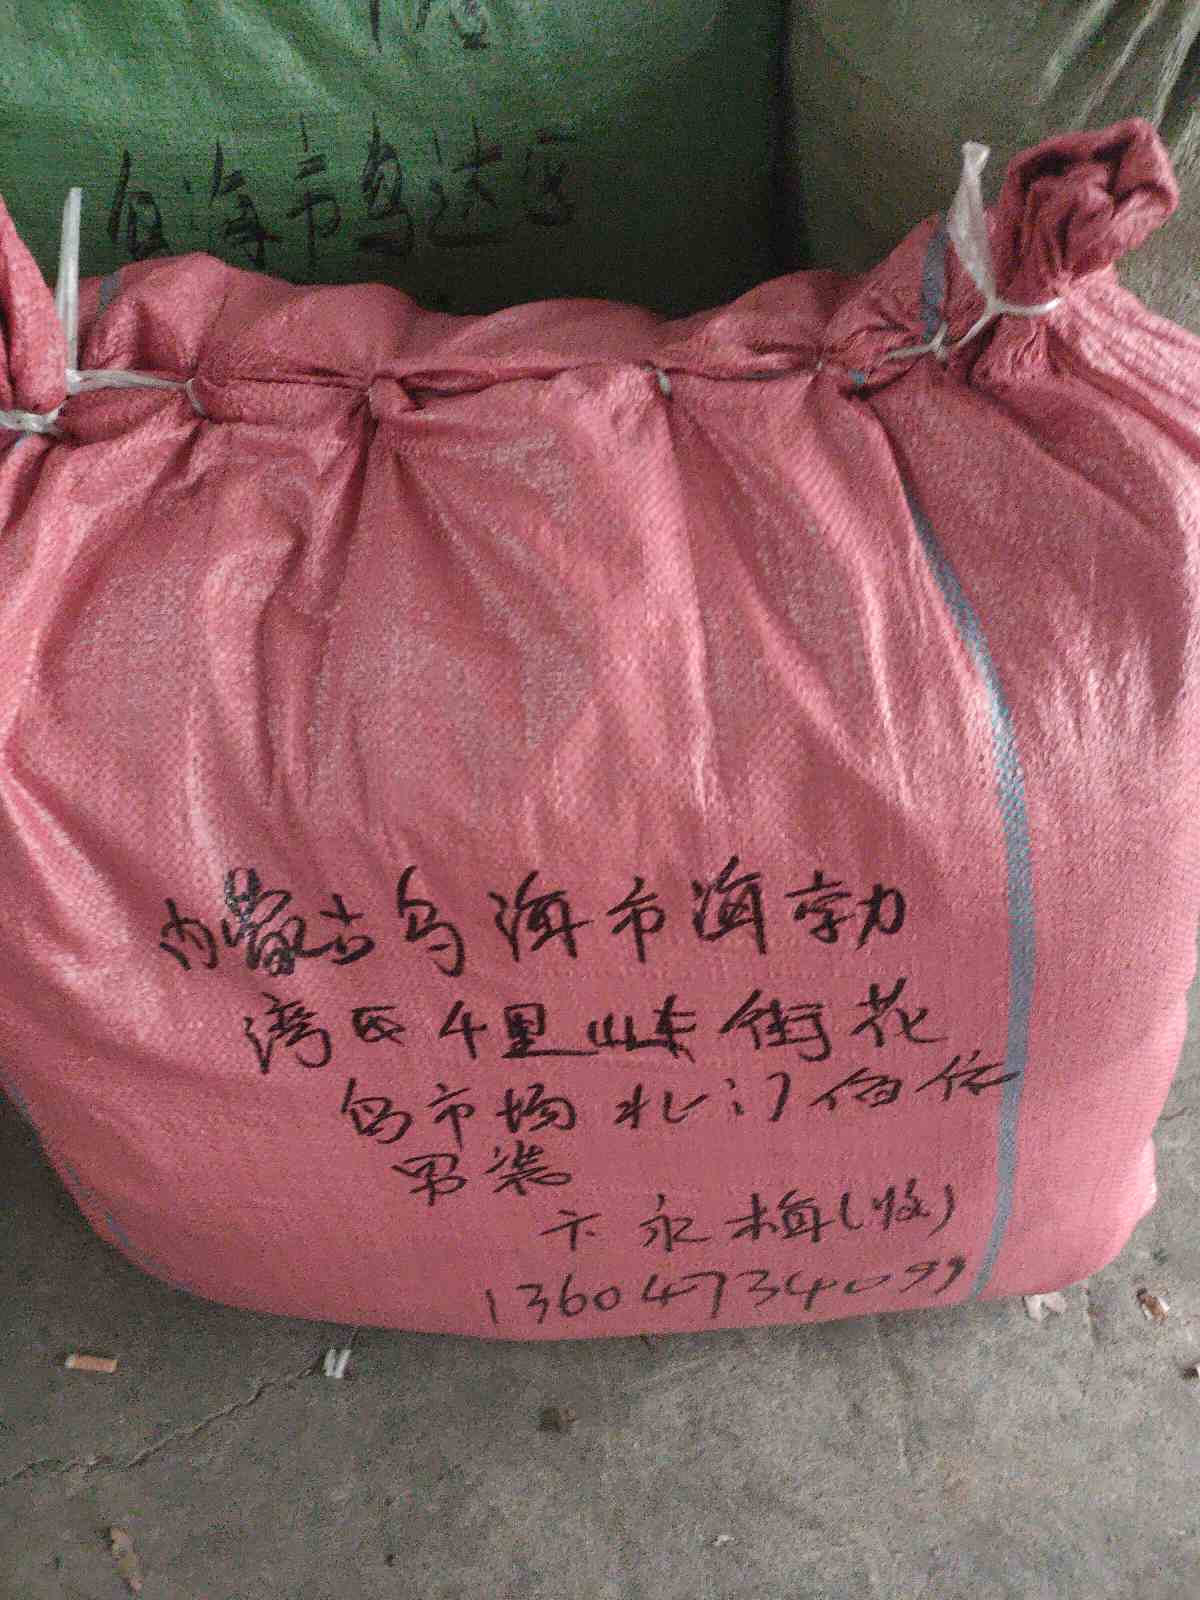 乌海市乌达区
内蒙古乌海市海勃
湾区4里山东街花
鸟市场北门佰依
男装
卞永梅(收)
13604734099